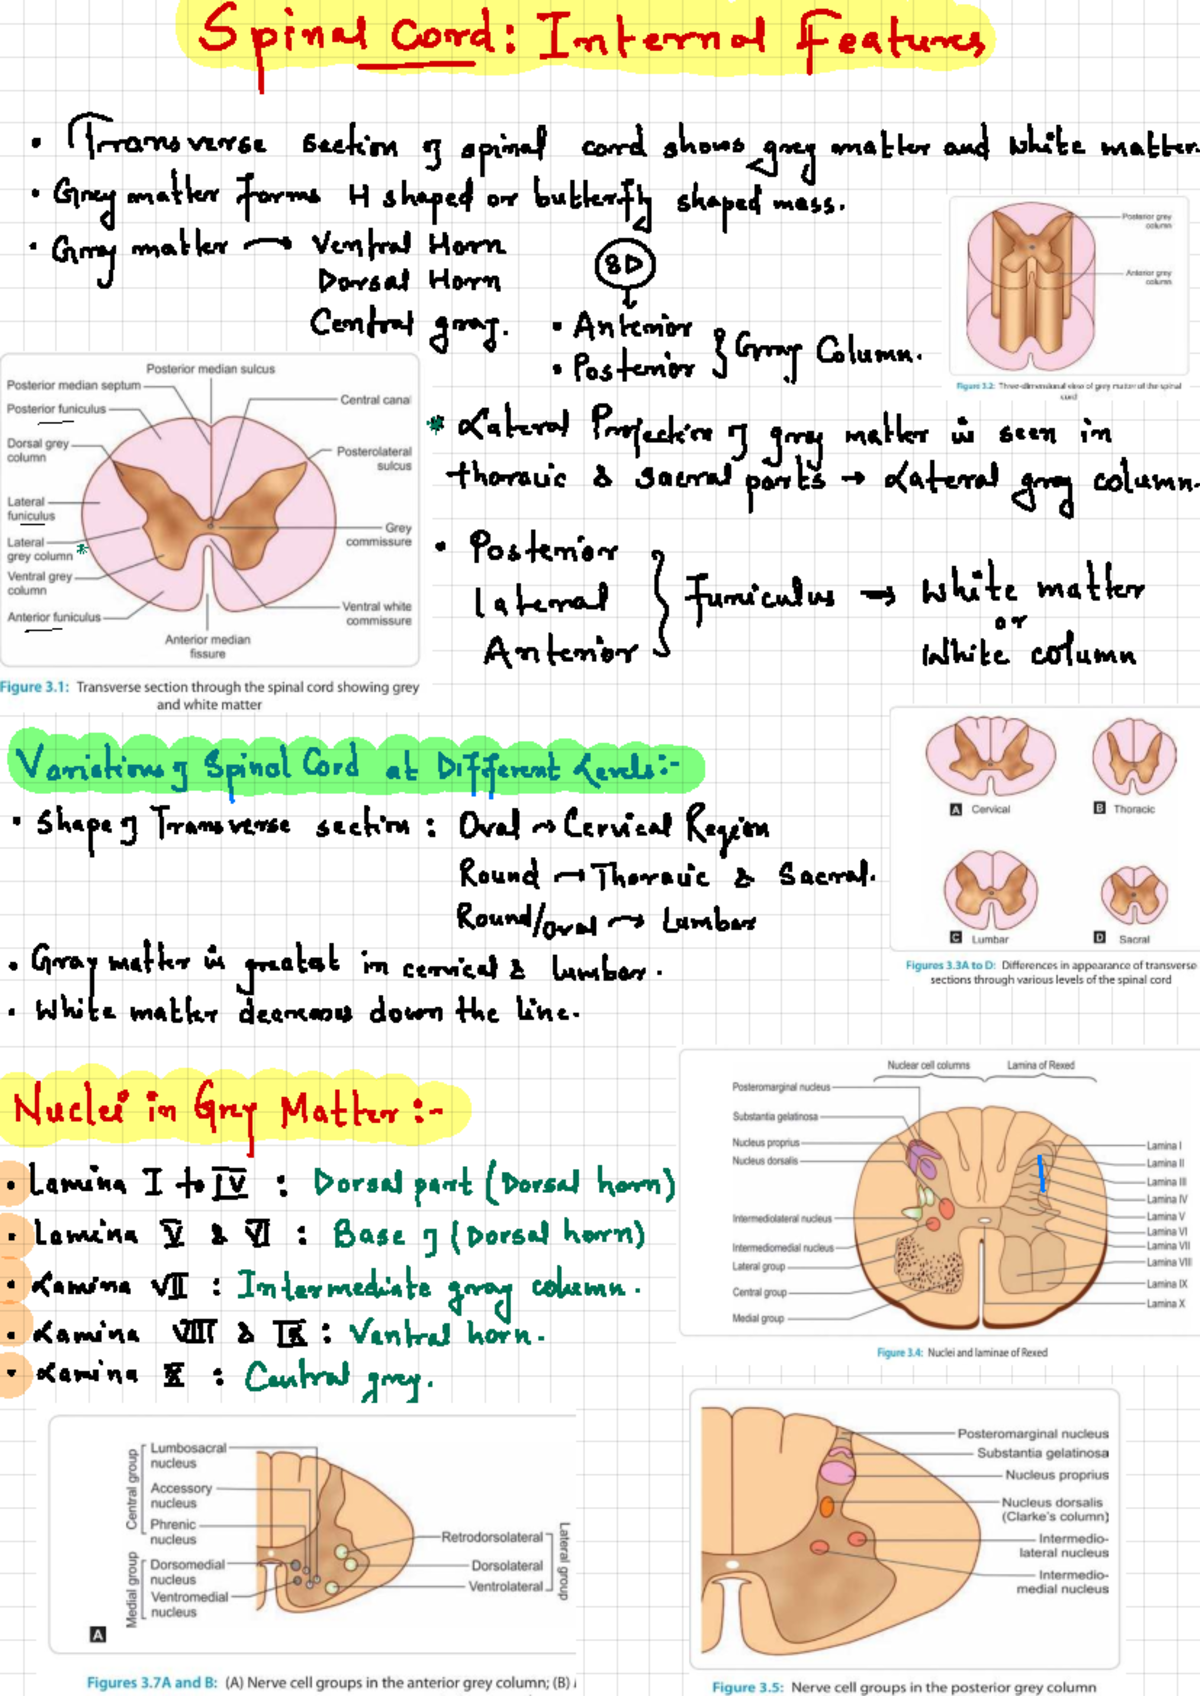 Spinal Cord: Internal Features
• Transverse section of spinal cord shows grey matter and White matter.
• Grey matter forms H shaped or butterfly shaped mass.
• Gray matter → Ventral Horn
Dorsal Horn
Central gray.
3D
• Anterior
• Posterior } Gray Column.
Posterior grey column
Anterior grey column
Figure 3.2: Three-dimensional view of grey matter of the spinal cord
Posterior median sulcus
Posterior median septum
Posterior funiculus
Dorsal grey column
Lateral funiculus
Lateral grey column *
Ventral grey column
Anterior funiculus
Central canal
Posterolateral sulcus
Grey commissure
Ventral white commissure
Anterior median fissure
Figure 3.1: Transverse section through the spinal cord showing grey
and white matter
* Lateral Projection of gray matter is seen in
thoracic & sacral parts → Lateral gray column.
• Posterior
lateral } Funiculus → White matter
or
Anterior
White column
Variations of Spinal Cord at Different Levels:-
• Shape of Transverse section : Oval → Cervical Region
Round → Thoracic & Sacral.
Round/oval → Lumbar
• Gray matter is greatest in cervical & lumbar.
• White matter decreases down the line.
A Cervical
B Thoracic
C Lumbar
D Sacral
Figures 3.3A to D: Differences in appearance of transverse
sections through various levels of the spinal cord
Nuclei in Grey Matter :-
• Lamina I to IV : Dorsal part (Dorsal horn)
• Lamina V & VI : Base of (Dorsal horn)
• Lamina VII : Intermediate gray column.
• Lamina VIII & IX : Ventral horn.
• Lamina X : Central grey.
Nuclear cell columns
Lamina of Rexed
Posteromarginal nucleus
Substantia gelatinosa
Nucleus proprius
Nucleus dorsalis
Intermediolateral nucleus
Intermediomedial nucleus
Lateral group
Central group
Medial group
Lamina I
Lamina II
Lamina III
Lamina IV
Lamina V
Lamina VI
Lamina VII
Lamina VIII
Lamina IX
Lamina X
Figure 3.4: Nuclei and laminae of Rexed
Central group
Lumbosacral nucleus
Accessory nucleus
Phrenic nucleus
Medial group
Dorsomedial nucleus
Ventromedial nucleus
Retrodorsolateral
Dorsolateral
Ventrolateral
Lateral group
A
Figures 3.7A and B: (A) Nerve cell groups in the anterior grey column; (B)
Posteromarginal nucleus
Substantia gelatinosa
Nucleus proprius
Nucleus dorsalis
(Clarke's column)
Intermedio-
lateral nucleus
Intermedio-
medial nucleus
Figure 3.5: Nerve cell groups in the posterior grey column